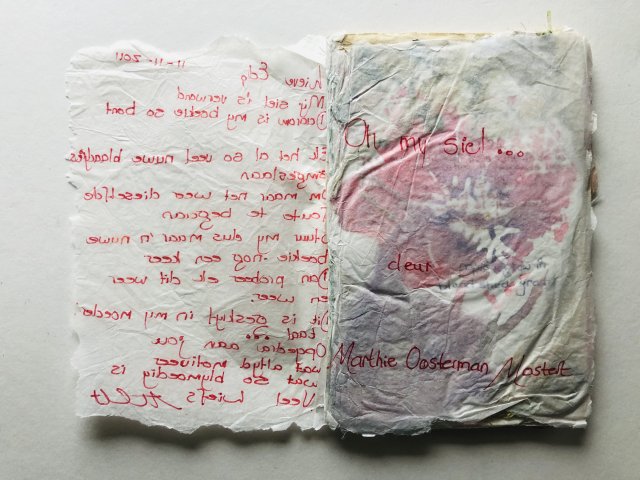 11-11-2011
Lieve
My siel is verward
Daarom is my boekie so bont
Ek het al so veel nuwe blaadjies
omgeslaan
Om maar net weer dieselfde
foute te begaan
Stuur my dus maar 'n nuwe
boekie - nog een keer
Dan probeer ek dit weer
en weer.
Dit is geskryf in my moeder
taal ...
Opgedra aan jou
wat altyd motiveer
wat so blymoedig is
Veel liefs
Oh my siel...
deur
Marthie Oosterman Mostert